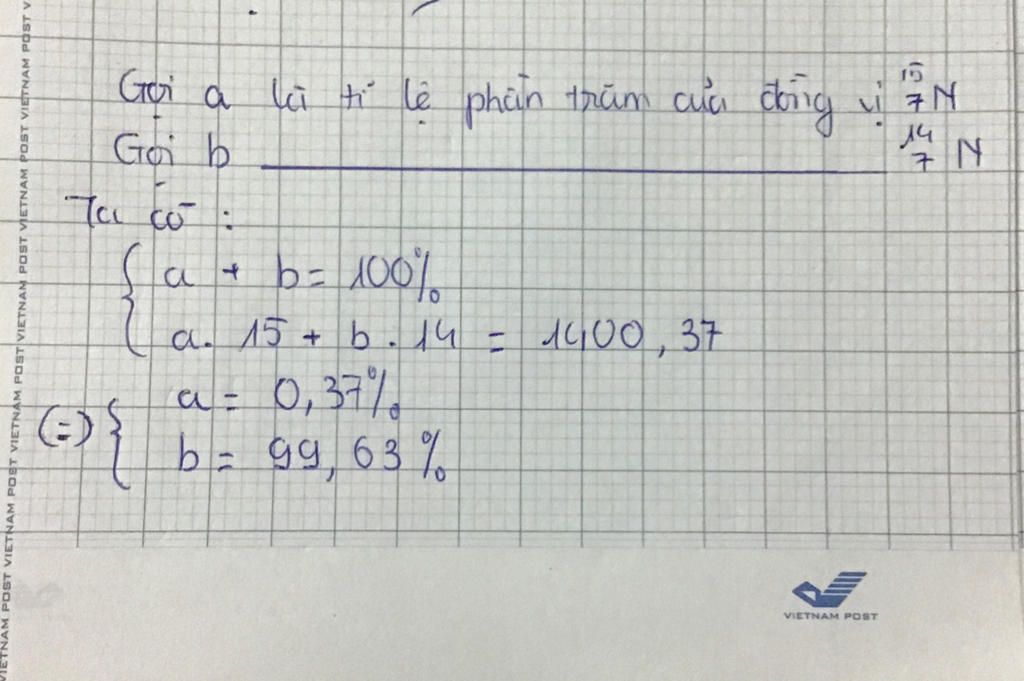 Gọi a là tỉ lệ phần trăm của đồng vị ¹⁵₇N
Gọi b ________________ ¹⁴₇N
Ta có :
{ a + b = 100%
a. 15 + b . 14 = 1400,37
(=) { a = 0,37%
b = 99,63%
VIETNAM POST
VIETNAM POST VIETNAM POST VIETNAM POST VIETNAM POST VIETNAM POST